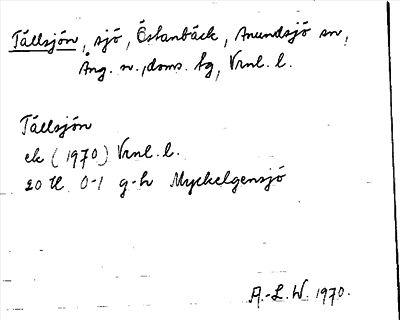 Tällsjön, sjö, Östanbäck, Anundsjö sn,
Ång. n., doms. hg, Vrnl. l.
Tällsjön
ek (1970) Vrnl. l.
20 H 0-1 g-h Myckelgensjö
A.-L. W. 1970.